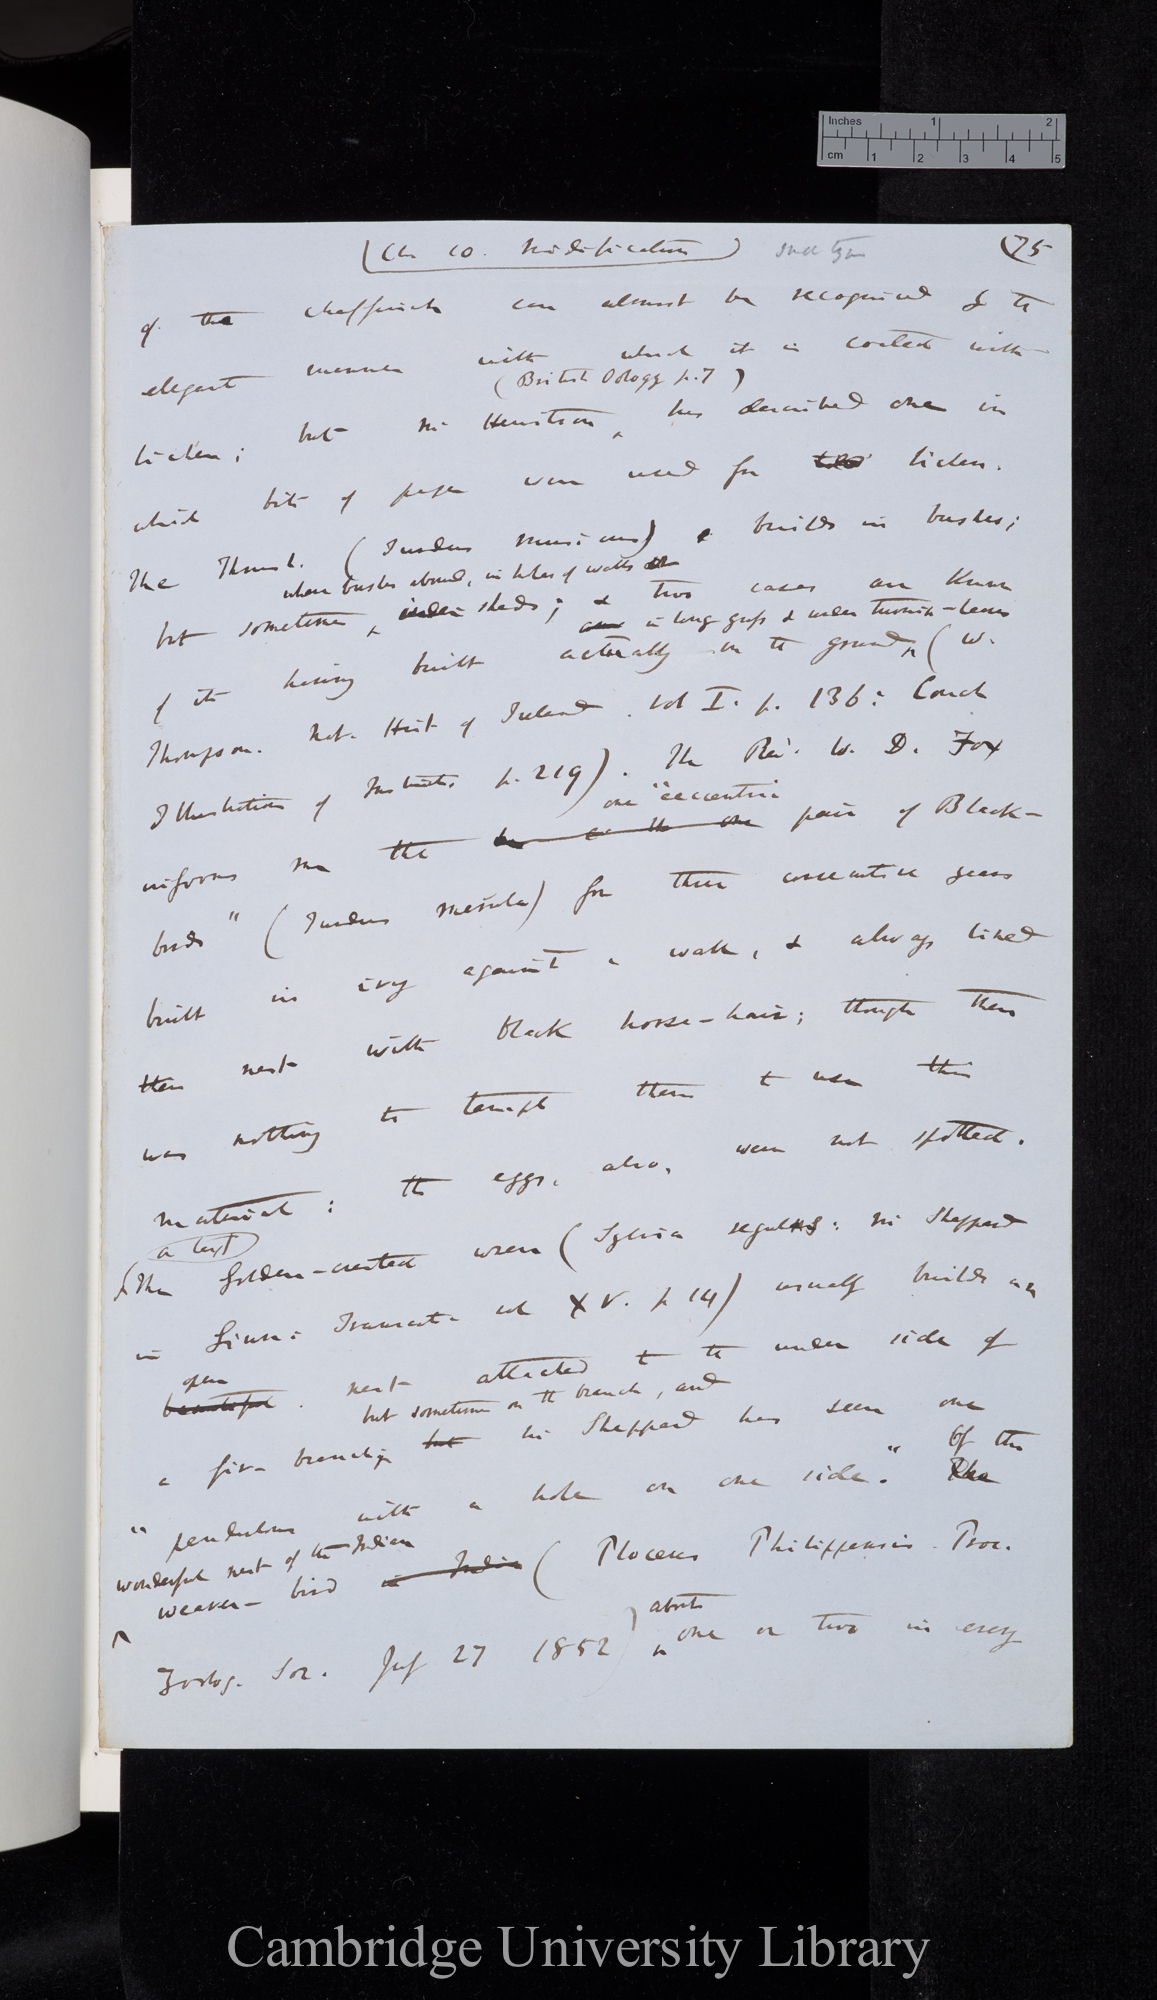 Inches 1 2
cm 1 2 3 4 5
(Ch 10. Nidification) (75
of the chaffinch can almost be recognised & the
elegant manner with which it is coated with
(British Oology p. 7)
lichen; but Mr Hewitson has described one in
which bits of paper were used for lichen.
The Thrush. (Turdus musicus) builds in bushes;
where bushes abound, in holes of walls or
but sometimes, under sheds; & two cases are known
in long grass & under turnip-leaves
of its having built actually on the ground, (W.
Thompson. Nat. Hist of Ireland. vol I. p. 136: Couch
Illustrations of Instinct. p. 219). The Rev. W. D. Fox
one "eccentric
informs me the pair of Black-
birds" (Turdus merula) for three consecutive years
built in ivy against a wall, & always lined
their nest with black horse-hair; though there
was nothing to tempt them to use this
material: the eggs, also, were not spotted.
The Golden-crested wren (Sylvia regulus: Mr Sheppard
in Linn: Transact. vol XV. p 14) usually builds an
open
beautiful nest attached to the under side of
but sometimes on the branch, and
a fir-branch; but Mr Sheppard has seen one
"pendulous with a hole on one side." Of the
wonderful nest of the Indian
weaver-bird in India (Ploceus Philippensis Proc.
about
Zoolog. Soc. July 27 1852) one or two in every
Cambridge University Library